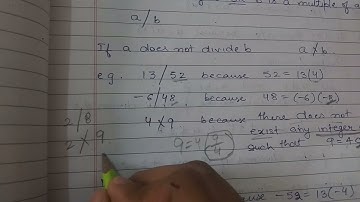 is a multiple of a
a/b
If a does not divide b a ∤ b
e.g. 13/52 because 52 = 13(4)
-6/48 because 48 = (-6)(-8)
2/8 4 ∤ 9 because there does not
2 ∤ 9 exist any integer
9 = 4 such that 9 = 4
because -52 = 13(-4)